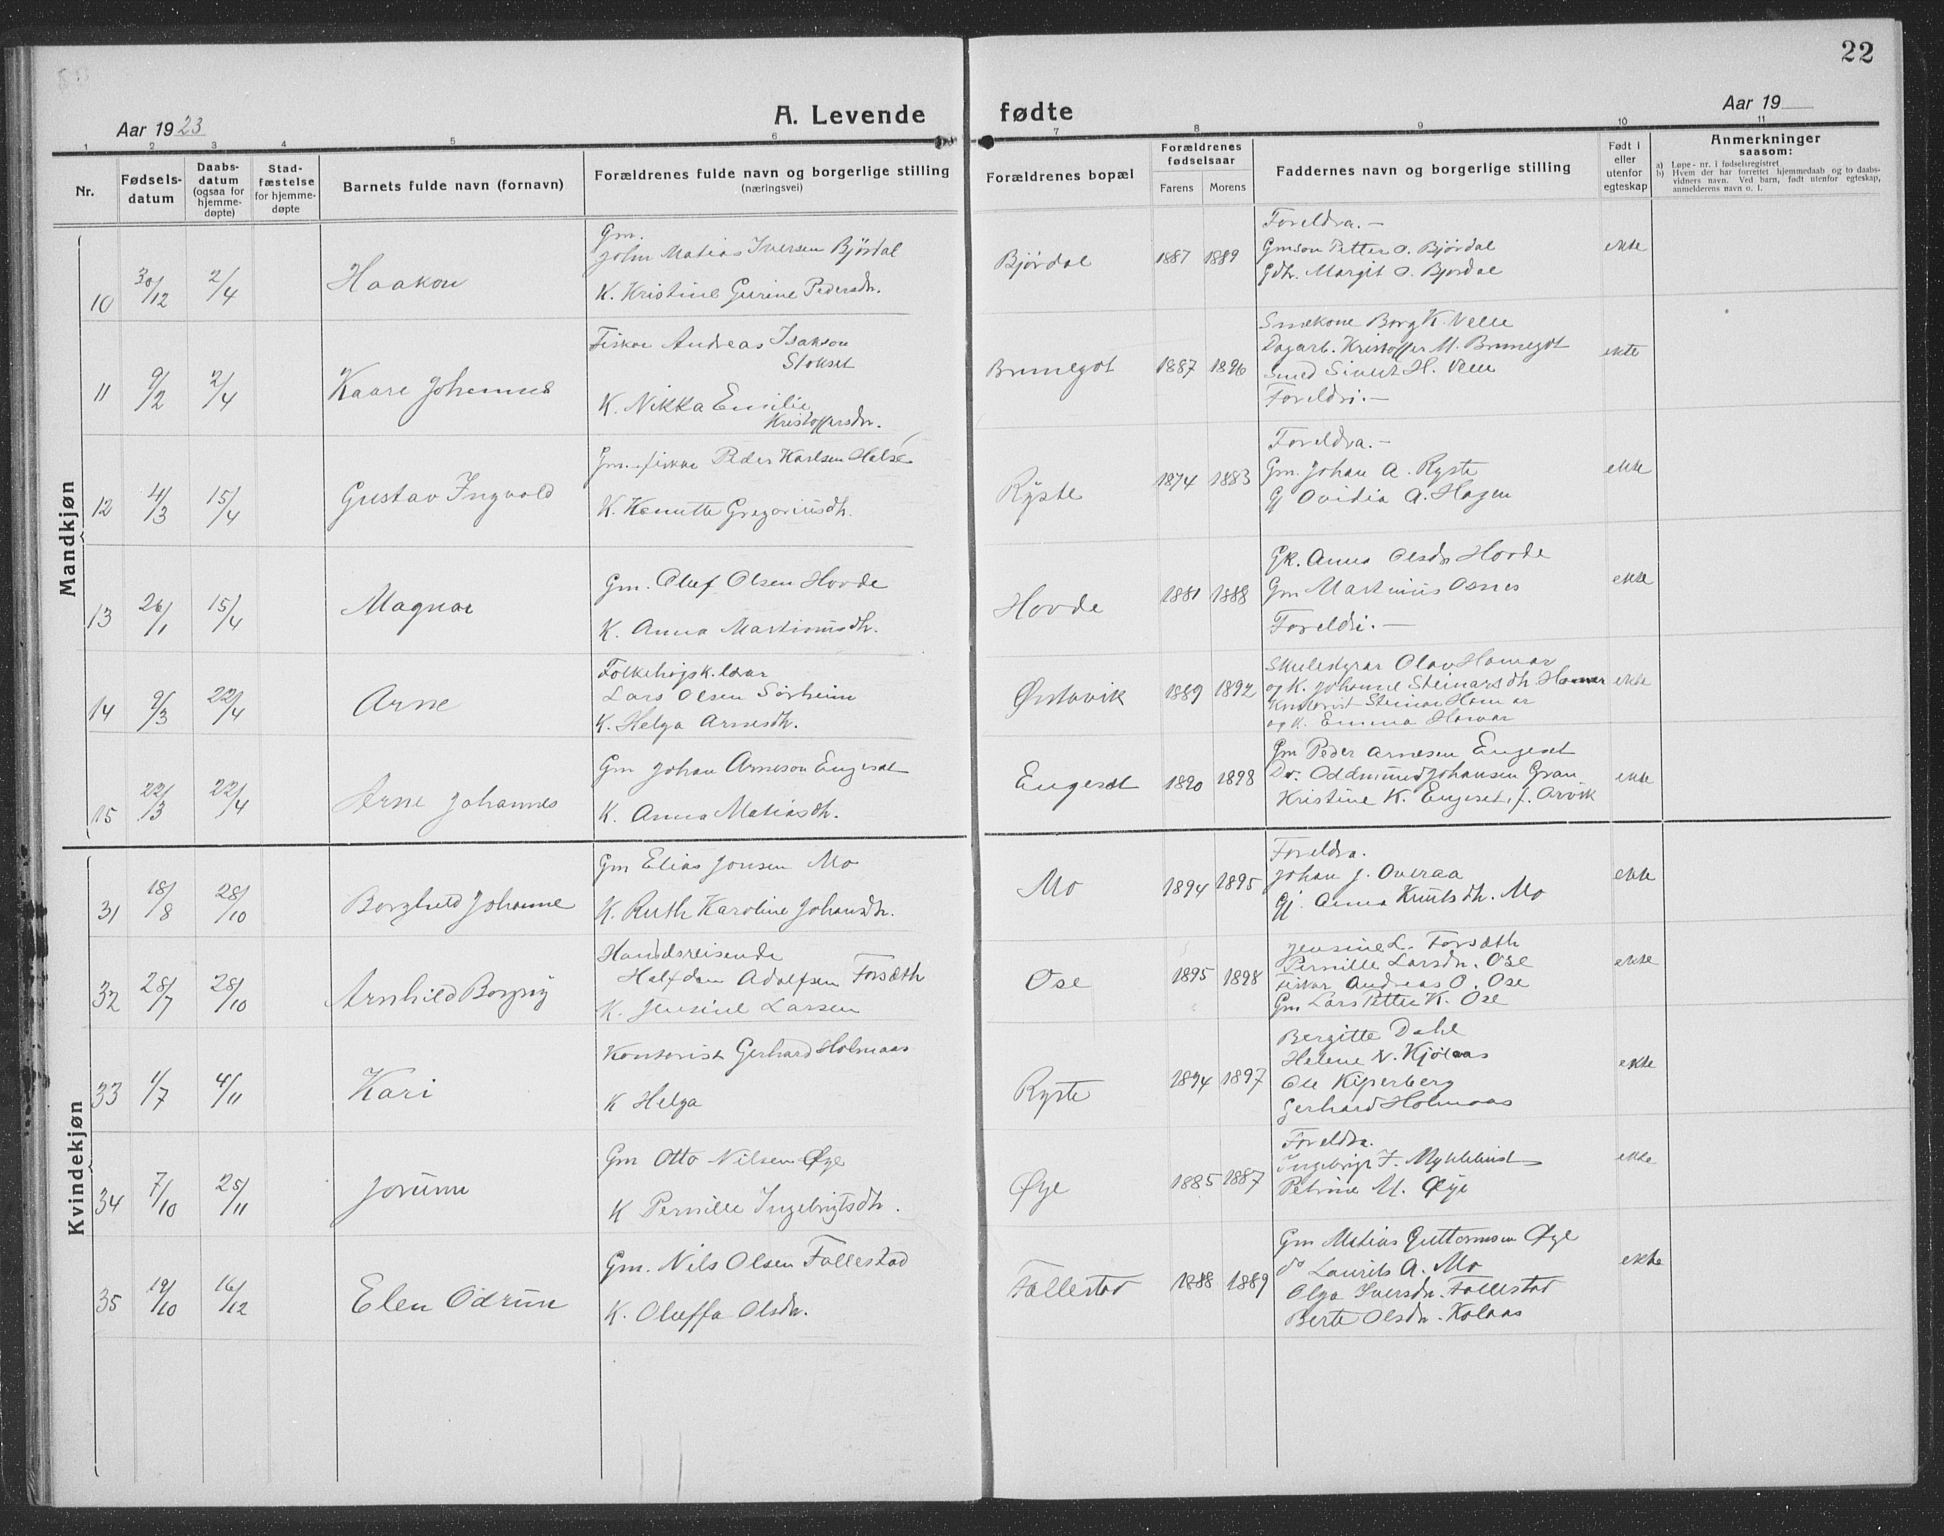 22
A. Levende fødte
Aar 1923
Aar 19
1 2 3 4 5 6 7 8 9 10 11
Nr.
Fødsels-
datum
Daabs-
datum
(ogsaa for
hjemme-
døpte)
Stad-
fæstelse
for hjemme-
døpte
Barnets fulde navn (fornavn)
Forældrenes fulde navn og borgerlige stilling
(næringsvei)
Forældrenes bopæl
Forældrenes
fødselsaar
Farens Morens
Faddernes navn og borgerlige stilling
Født i
eller
utenfor
egteskap
Anmerkninger
saasom:
a) Løpe-nr. i fødselsregistret
b) Hvem der har forrettet hjemmedaab og to daabs-
vidners navn. Ved barn, født utenfor egteskap,
anmelderens navn o. l.
Mandkjøn
10 30/12 2/4 Haakon
Gm.
John Matias Iversen Bjørdal
K. Kristine Gurine Pedersdr.
Bjørdal 1887 1889
Foreldra. —
Gmson Petter O. Bjørdal
Gdr. Margit O. Bjørdal
ekte
11 9/2 2/4 Kaare Johannes
Fiskar Andreas Isakson
Stokset
K. Nikka Emilie
Kristoffersdr.
Brunegot 1887 1896
Smekone Borg K. Velle
Dagarb. Kristoffer M. Brunegot
Smed Sivert H. Velle
Foreldri. —
ekte
12 4/3 15/4 Gustav Ingvald
Gm. fiskar Peder Karlsen Halse
K. Kanutte Gregoriusdtr.
Ryste 1874 1883
Foreldra. —
Gm. Johan A. Ryste
Gj Ovidia A. Hagen
ekte
13 26/1 15/4 Magnar
Gm. Oluf Olsen Hovde
K. Anna Martinusdtr.
Hovde 1881 1888
Gk. Anna Olsdr Hovde
Gm Martinus Osnes
Foreldri. —
ekte
14 9/3 22/4 Arne
Folkehøgsk. lærar
Lars Olsen Sørheim
K. Helga Arnesdtr.
Ørstavik 1889 1892
Skulestyrar Olav Hamar
og K. Johanne Steinarsdtr Hamar
Steinar Hamar
og K. Emma Hamar
ekte
15 22/3 22/4 Arne Johannes
Gm Johan Arneson Engeset
K. Anna Matiasdtr.
Engeset 1890 1898
Gm Peder Arnesen Engeset
Do. Oddmund Johansen Gran
Kristine K. Engeset, f. Arvik
ekte
Kvindekjøn
31 18/8 28/10 Borghild Johanne
Gm Elias Jonsen Mo
K. Ruth Karoline Johansdtr.
Mo 1894 1895
Foreldra.
Johan J. Overaa
Gj. Anna Knutsdtr. Mo
ekte
32 28/7 28/10 Arnhild Borgny
Handelsreisende
Halfdan Adolfsen Forsæth
K. Jensine Larsen
Ose 1895 1898
Jensine L. Forsæth
Pernille Larsdr. Ose
Fiskar Andreas O. Ose
Gm Lars Petter K. Ose
ekte
33 1/7 4/11 Kari
Kontorist Gerhard Holmaas
K Helga
Ryste 1894 1897
Bergitte Dahl
Helene N. Kjølaas
Ole Kiperberg
Gerhard Holmaas
ekte
34 7/10 25/11 Jorunn
Gm Otto Nilsen Øye
K Pernille Ingebrigtsdtr.
Øye 1885 1887
Foreldra.
Ingebrigt J. Myklebust
Petrine M. Øye
ekte
35 19/10 16/12 Elen Odrun
Gm. Nils Olsen Follestad
K. Oluffa Olsdr.
Follestad 1888 1889
Gm Matias Guttormsen Øye
do Laurits A. Mo
Olga Iversdr. Follestad
Berte Olsdr. Kolaas
ekte